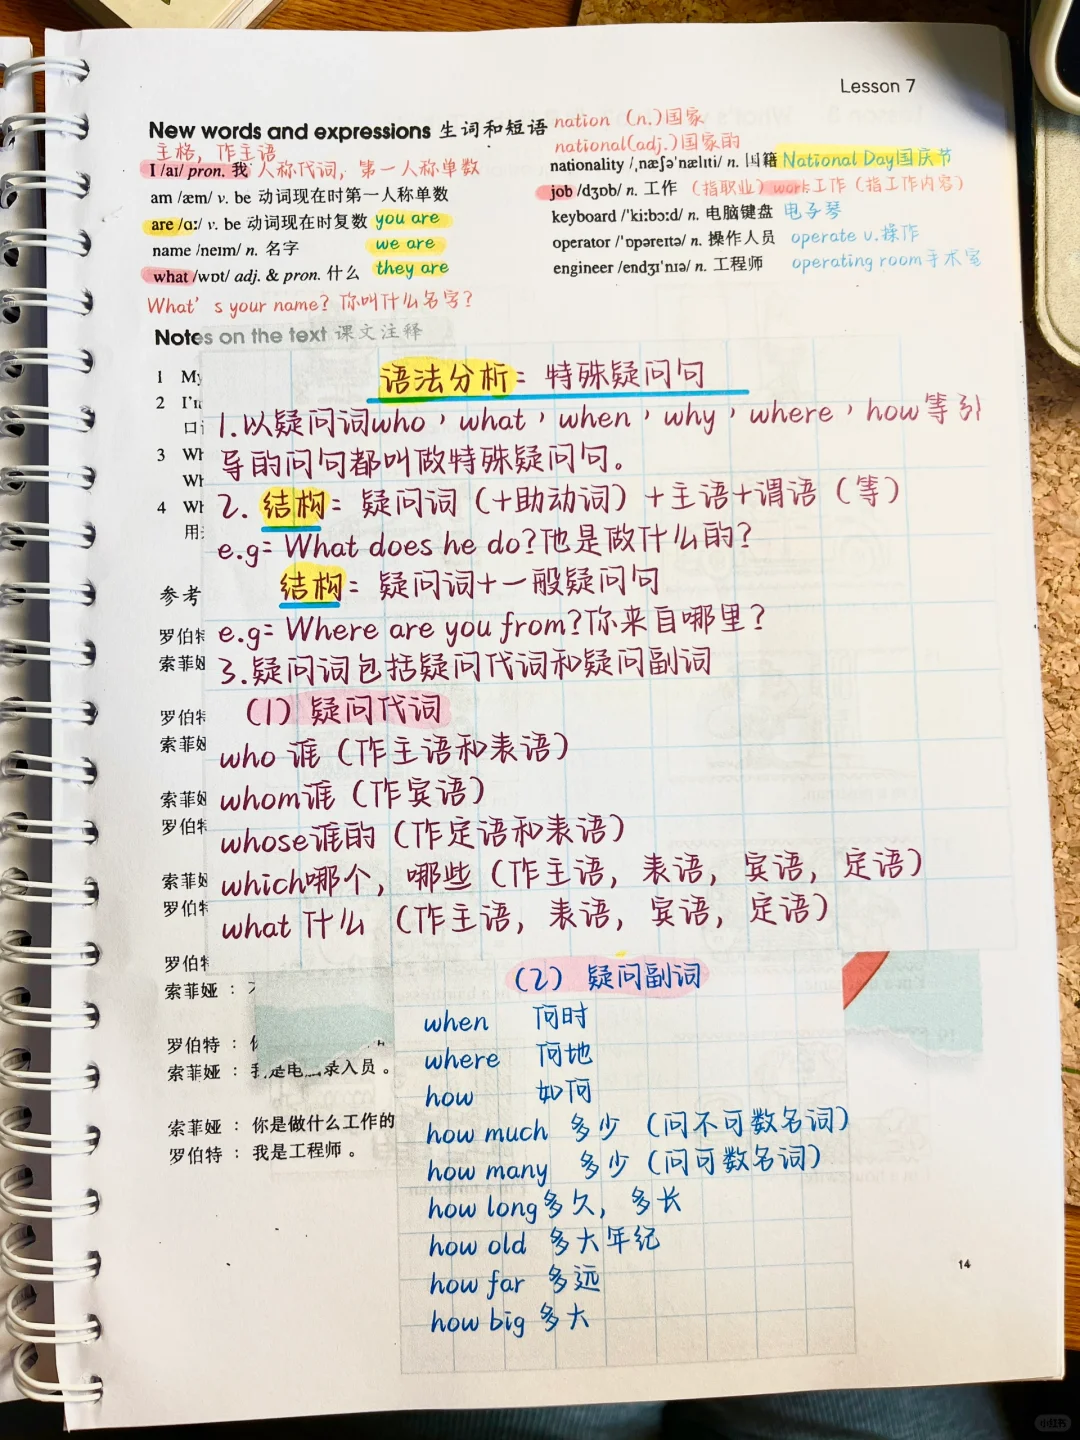 Lesson 7
New words and expressions 生词和短语
nation (n.)国家
national(adj.)国家的
主格，作主语
I /aɪ/ pron. 我 人称代词，第一人称单数
am /æm/ v. be 动词现在时第一人称单数
are /ɑː/ v. be 动词现在时复数 you are
name /neɪm/ n. 名字 we are
what /wɒt/ adj. & pron. 什么 they are
What's your name? 你叫什么名字?
nationality /ˌnæʃəˈnælɪti/ n. 国籍 National Day国庆节
job /dʒɒb/ n. 工作 (指职业) work工作 (指工作内容)
keyboard /ˈkiːbɔːd/ n. 电脑键盘 电子琴
operator /ˈɒpəreɪtə/ n. 操作人员 operate v.操作
engineer /endʒɪˈnɪə/ n. 工程师 operating room手术室
Notes on the text 课文注释
1 My
2 I'm
3 Wh
Wh
4 Wh
参考
语法分析: 特殊疑问句
1.以疑问词who，what，when，why，where，how等引
导的问句都叫做特殊疑问句。
2. 结构: 疑问词 (+助动词) +主语+谓语 (等)
e.g: What does he do?他是做什么的?
结构: 疑问词+一般疑问句
e.g: Where are you from?你来自哪里?
3.疑问词包括疑问代词和疑问副词
(1) 疑问代词
who 谁 (作主语和表语)
whom谁 (作宾语)
whose谁的 (作定语和表语)
which哪个，哪些 (作主语，表语，宾语，定语)
what 什么 (作主语，表语，宾语，定语)
罗伯特
索菲娅
罗伯特
索菲娅
索菲娅
罗伯特
索菲娅
罗伯特
罗伯特
索菲娅：
罗伯特：
索菲娅：我是电 录入员。
索菲娅：你是做什么工作的
罗伯特：我是工程师。
(2) 疑问副词
when 何时
where 何地
how 如何
how much 多少 (问不可数名词)
how many 多少 (问可数名词)
how long多久，多长
how old 多大年纪
how far 多远
how big 多大
14
小红书